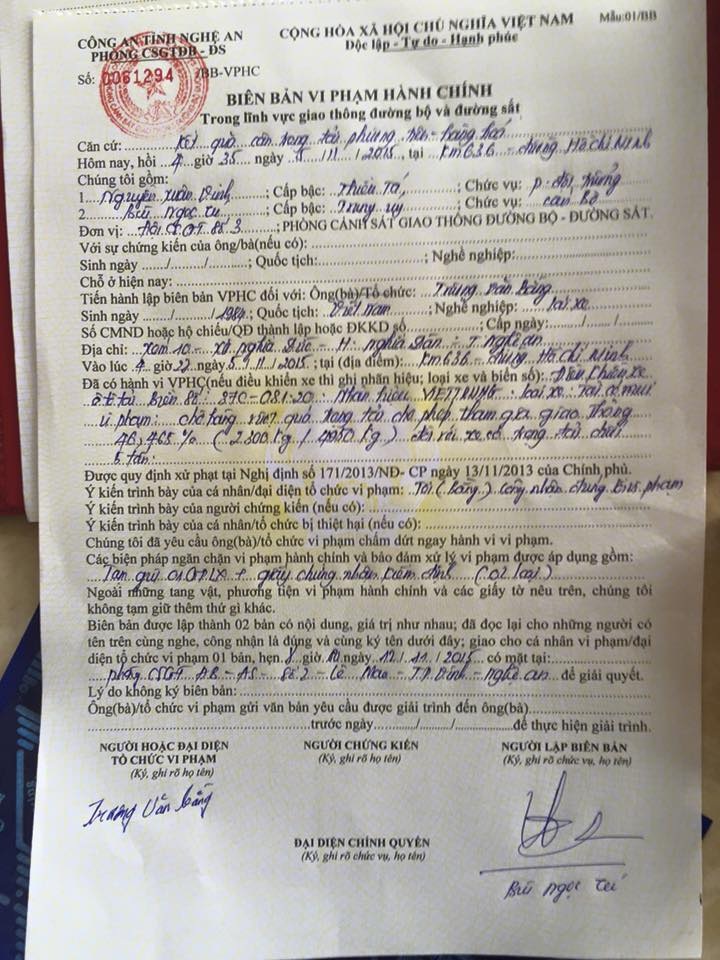 CÔNG AN TỈNH NGHỆ AN
PHÒNG CSGTĐB - ĐS
CỘNG HÒA XÃ HỘI CHỦ NGHĨA VIỆT NAM
Mẫu:01/BB
Độc lập - Tự do - Hạnh phúc
Số: 0061294 /BB-VPHC
BIÊN BẢN VI PHẠM HÀNH CHÍNH
Trong lĩnh vực giao thông đường bộ và đường sắt
Căn cứ: Kết quả cân trọng tải phương tiện - hàng hoá
Hôm nay, hồi 4 giờ 35 ngày 5/11/2015, tại Km 636 - đường Hồ Chí Minh
Chúng tôi gồm:
1. Nguyễn Xuân Vinh; Cấp bậc: Thiếu Tá; Chức vụ: P. đội trưởng
2. Bùi Ngọc Tú; Cấp bậc: Trung úy; Chức vụ: Cán bộ
Đơn vị: Đội CSGT số 3; PHÒNG CẢNH SÁT GIAO THÔNG ĐƯỜNG BỘ - ĐƯỜNG SẮT.
Với sự chứng kiến của ông/bà(nếu có):
Sinh ngày ..../..../....; Quốc tịch:; Nghề nghiệp:
Chỗ ở hiện nay:
Tiến hành lập biên bản VPHC đối với: Ông(bà)/Tổ chức: Trương Văn Bằng
Sinh ngày ..../..../1984; Quốc tịch: Việt Nam; Nghề nghiệp: Lái xe
Số CMND hoặc hộ chiếu/QĐ thành lập hoặc ĐKKD số; Cấp ngày:
Địa chỉ: Xóm 10 - xã Nghĩa Đức - H. Nghĩa Đàn - T. Nghệ An
Vào lúc 4 giờ 22 ngày 5/11/2015; tại (địa điểm): Km 636 - đường Hồ Chí Minh
Đã có hành vi VPHC(nếu điều khiển xe thì ghi nhãn hiệu; loại xe và biển số): Điều khiển xe
ô tô tải Biển số: 37C-081.20. Nhãn hiệu VIETTRUNG. loại xe: Tải có mui
vi phạm: chở hàng vượt quá trọng tải cho phép tham gia giao thông
46,465% (2.300 kg / 4950 kg) đối với xe có trọng tải dưới
5 tấn.
Được quy định xử phạt tại Nghị định số 171/2013/NĐ- CP ngày 13/11/2013 của Chính phủ.
Ý kiến trình bày của cá nhân/đại diện tổ chức vi phạm: Tôi (Bằng) công nhận đúng lỗi vi phạm
Ý kiến trình bày của người chứng kiến (nếu có):
Ý kiến trình bày của cá nhân/tổ chức bị thiệt hại (nếu có):
Chúng tôi đã yêu cầu ông(bà)/tổ chức vi phạm chấm dứt ngay hành vi vi phạm.
Các biện pháp ngăn chặn vi phạm hành chính và bảo đảm xử lý vi phạm được áp dụng gồm:
Tạm giữ 01 GPLX + giấy chứng nhận kiểm định (02 loại)
Ngoài những tang vật, phương tiện vi phạm hành chính và các giấy tờ nêu trên, chúng tôi
không tạm giữ thêm thứ gì khác.
Biên bản được lập thành 02 bản có nội dung, giá trị như nhau; đã đọc lại cho những người có
tên trên cùng nghe, công nhận là đúng và cùng ký tên dưới đây; giao cho cá nhân vi phạm/đại
diện tổ chức vi phạm 01 bản, hẹn 8 giờ 00 ngày 12/11/2015 có mặt tại:
phòng CSGT ĐB - ĐS - Số 2 - Lê Mao - TP Vinh - Nghệ An để giải quyết.
Lý do không ký biên bản:
Ông(bà)/tổ chức vi phạm gửi văn bản yêu cầu được giải trình đến ông(bà)
trước ngày ..../..../.... để thực hiện giải trình.
NGƯỜI HOẶC ĐẠI DIỆN
TỔ CHỨC VI PHẠM
(Ký, ghi rõ họ tên)
NGƯỜI CHỨNG KIẾN
(Ký, ghi rõ họ tên)
NGƯỜI LẬP BIÊN BẢN
(Ký, ghi rõ chức vụ, họ tên)
Trương Văn Bằng
ĐẠI DIỆN CHÍNH QUYỀN
(Ký, ghi rõ chức vụ, họ tên)
Bùi Ngọc Tú